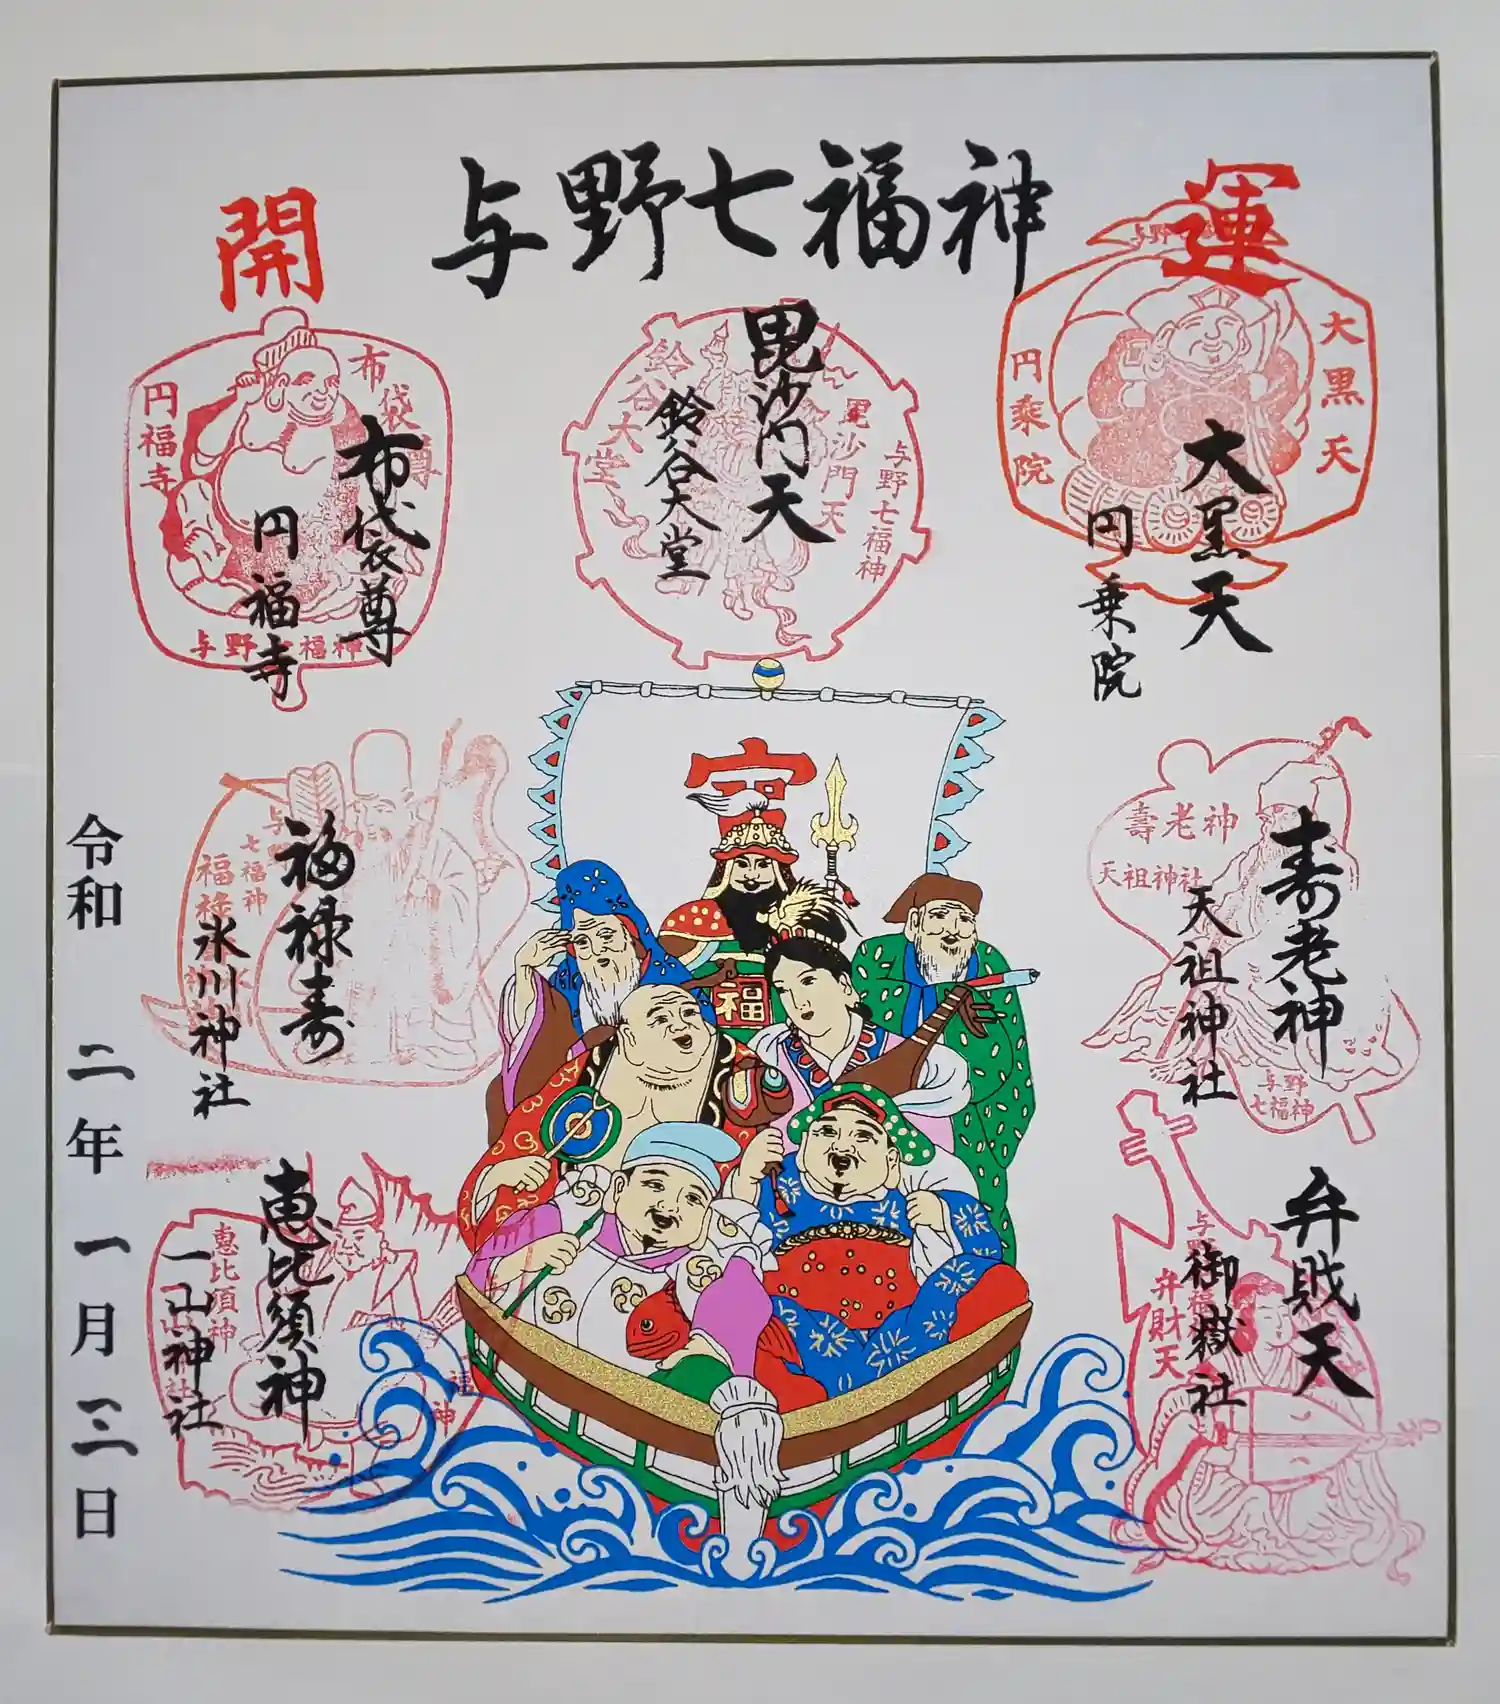 与野七福神
開
運
大黒天
円乗院
大黒天
円乗院
毘沙門天
鈴谷大堂
与野七福神
毘沙門天
鈴谷大堂
布袋尊
円福寺
布袋尊
円福寺
与野七福神
寿老神
天祖神社
壽老神
天祖神社
与野
七福神
宝
福
福禄寿
氷川神社
七福神
福禄
弁財天
御嶽社
弁財天
恵比須神
一山神社
恵比須神
令和 二年 一月 三日